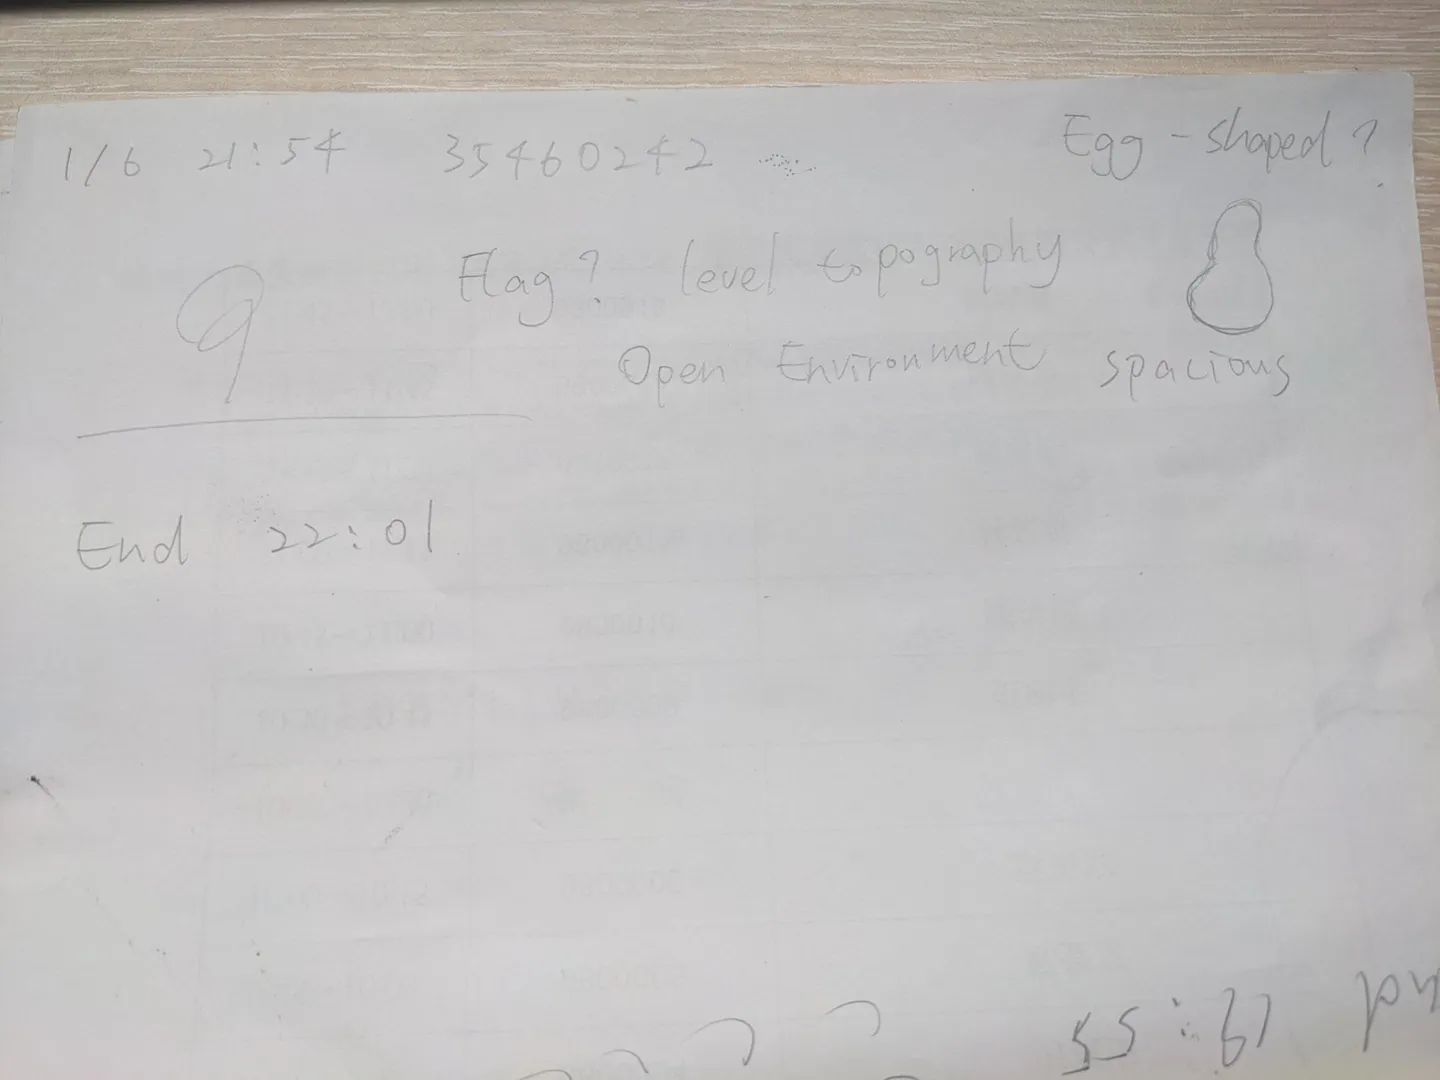 1/6 21:54 35460242
Egg-shaped?
Flag? level topography
Open Environment spacious
End 22:01
End 19:55